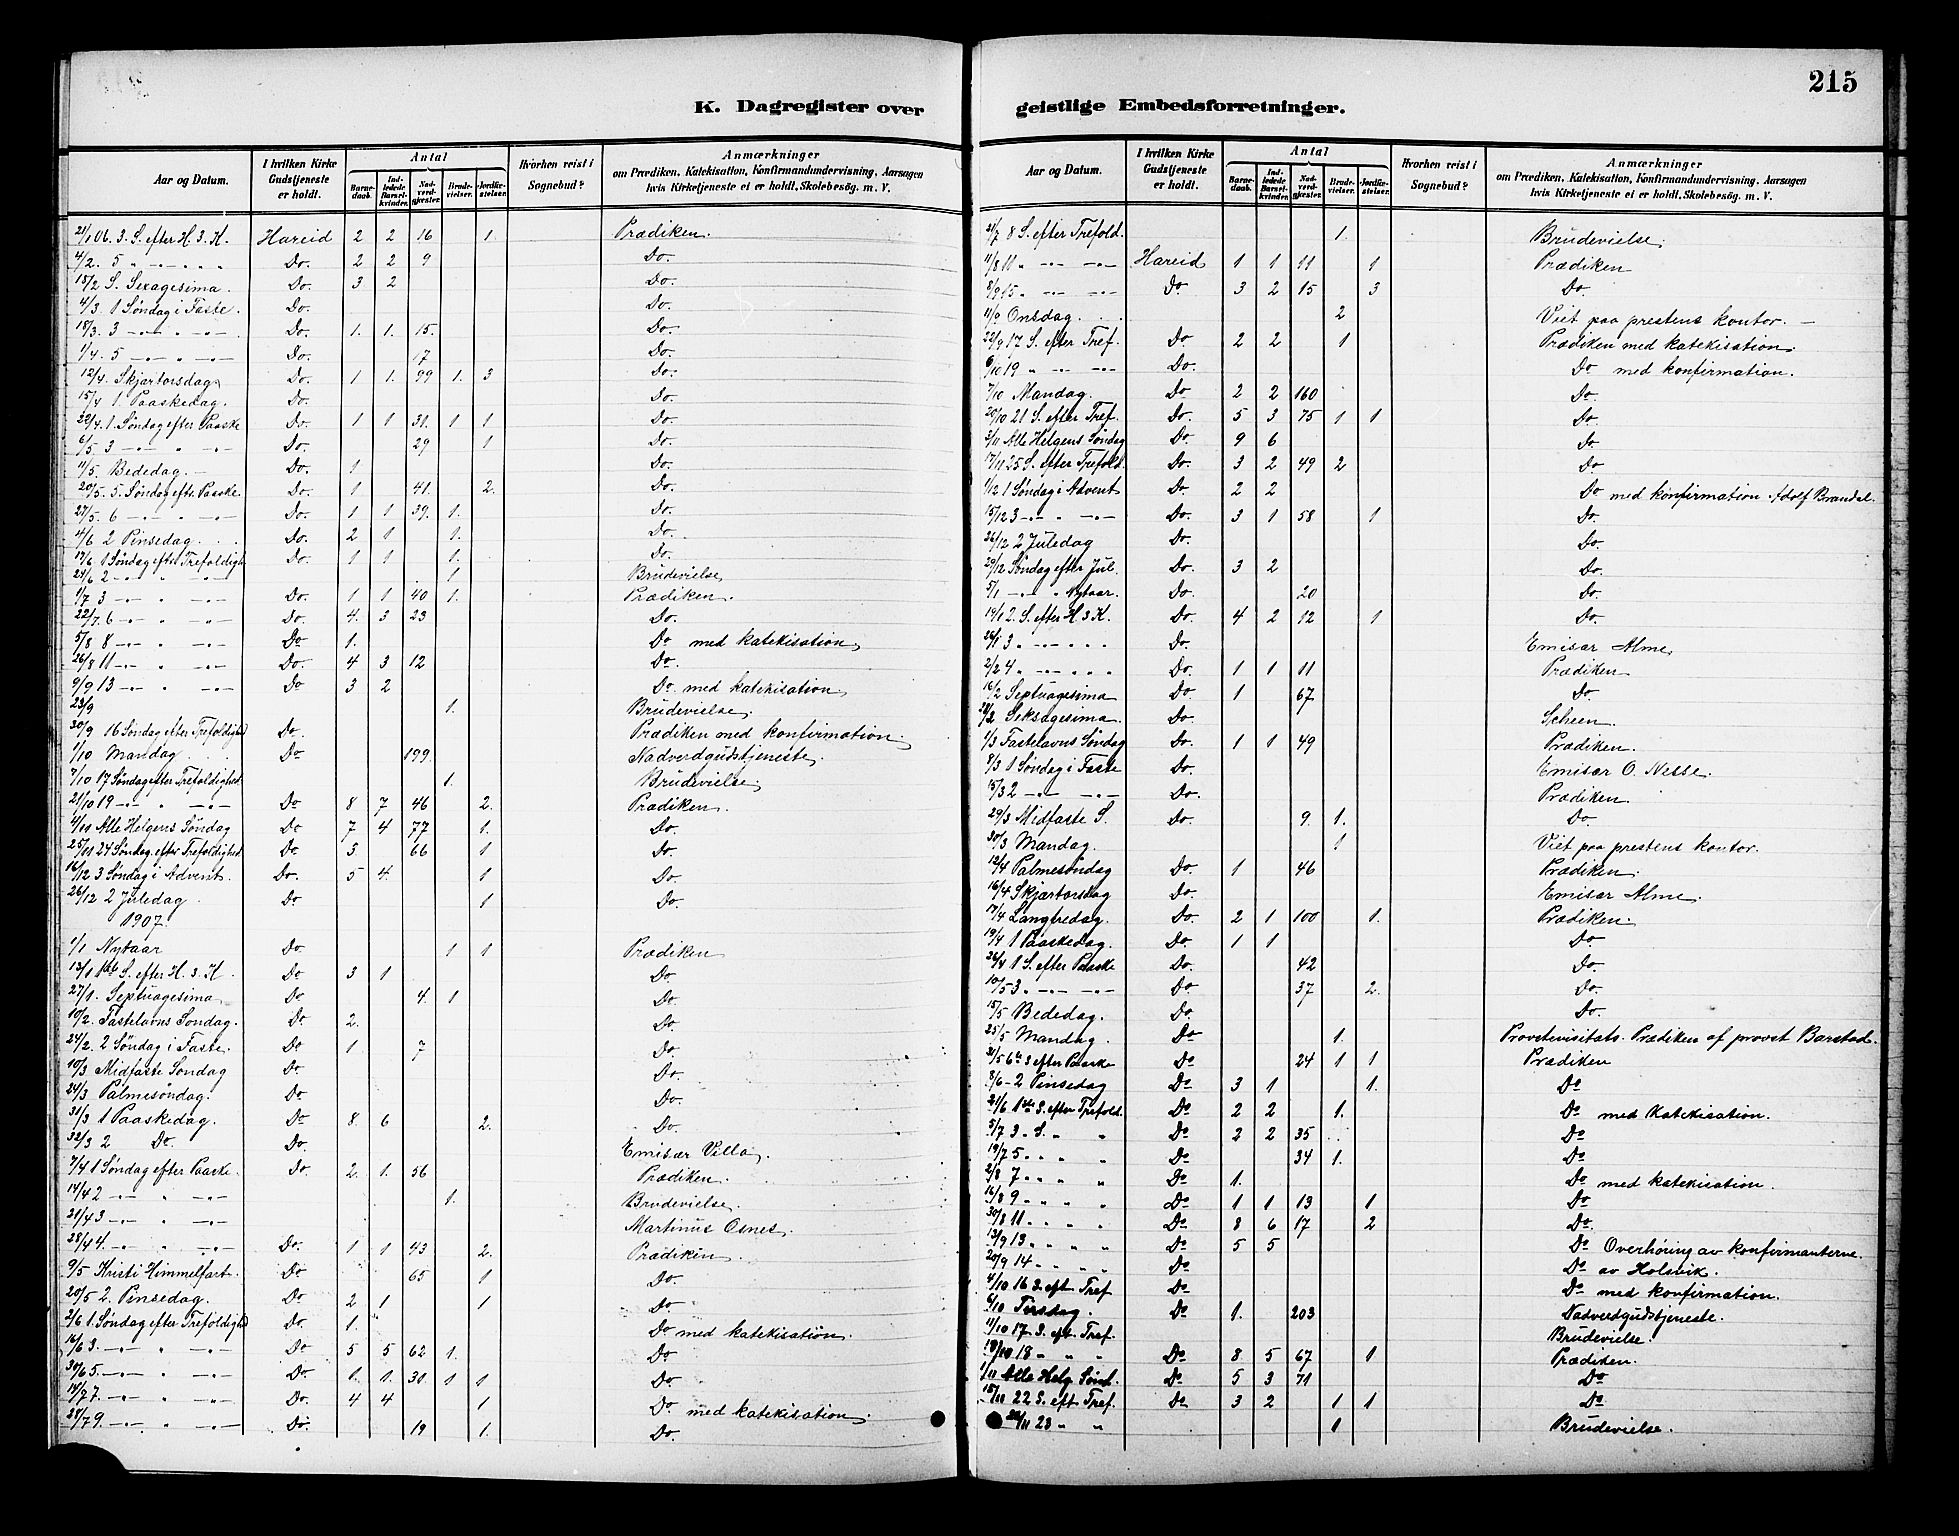 215
K. Dagregister over geistlige Embedsforretninger.
Aar og Datum. I hvilken Kirke Gudstjeneste er holdt. Antal Barnedaab. Indledede Barselkvinder. Nadverdgjester. Brudevielser. Jordfæstelser. Hvorhen reist i Sognebud? Anmærkninger om Prædiken, Katekisation, Konfirmandundervisning, Aarsagen hvis Kirketjeneste ei er holdt, Skolebesøg. m. V.
21/1 06. 3. S. efter H. 3. K. Hareid 2 2 16 1. Prædiken.
4/2. 5 " -"- " " Do. 2 2 9 Do.
18/2 S. Sexagesima. Do. 3 2 Do.
4/3. 1 Søndag i Faste. Do. Do.
18/3. 3 -"- " -"- Do. 1. 1. 15. Do.
1/4. 5 -"- " -"- Do. 17 Do.
12/4. Skjærtorsdag. Do. 1 1. 99 1. 3 Do.
15/4 1. Paaskedag. Do. Do.
22/4. 1. Søndag efter Paaske Do. 1 1 31. 1 1 Do.
6/5. 3 -"- " -"- Do. 29 1 Do.
11/5. Bededag. Do. 1 Do.
20/5. 5. Søndag eft. Paaske Do. 1 41. 2. Do.
27/5. 6 -"- " -"- Do. 1 1 39. 1. Do.
4/6 2 Pinsedag. Do. 2 1 1. Do.
17/6. 1 Søndag efter Trefoldigh Do. 1 1 1. Do.
24/6 2 -"- " -"- 1. Brudevielse
1/7 3 -"- " -"- Do. 1 1 40 1. Prædiken.
22/7. 6 -"- " -"- Do. 4. 3 23 Do.
5/8 8 -"- " -"- Do 1. Do med katekisation
26/8 11 -"- " -"- Do. 4 3 12 Do.
9/9 13 -"- " -"- Do 3 2 Do. med katekisation
23/9 1. Brudevielse.
30/9 16 Søndag efter Trefoldighed Do. Prædiken med konfirmation.
1/10 Mandag Do 199. Nadverdgudstjeneste.
7/10 17 Søndag efter Trefoldighed. 1. Brudevielse.
21/10 19 -"- " -"- Do 8 7 46 2. Prædiken.
4/11 Alle Helgens Søndag Do 7 4 77 1. Do.
25/11 24 Søndag efter Trefoldighed. Do 3. 66 1 Do.
16/12 3 Søndag i Advent. Do. 5 4. 1 Do
26/12 2 Juledag Do 1 Do.
1907.
1/1 Nytaar Do 1 1 Prædiken
13/1 1ste S. efter H. 3. K. Do 3 1 Do
27/1. Septuagesima Do 4. 1 Do
10/2. Fastelavns Sondag. Do 2. Do
24/2. 2 Søndag i Faste. Do 1. 7 Do
10/3 Midfaste Søndag Do Do.
24/3 Palmesøndag. Do Do.
31/3 1 Paaskedag. Do 8 6 2. Do.
32/3 2 Do. Do. Emisær Villa.
7/4 1 Søndag efter Paaske. Do. 2. 1. 56 Prædiken.
14/4 2 -"- " -"- 1. Brudevielse.
21/4 3 -"- " -"- Martinus Osnes.
28/4 4. -"- " -"- Do. 1 1 43 2. Prædiken.
9/5 Kristi Himmelfart. Do 65 1 Do.
20/5 2. Pinsedag. Do 2 1 1 Do
2/6 1. Søndag efter Trefoldighd Do. 1. Do med katekisation.
16/6 3. -"- " -"- Do 5 5 62 1. Do
30/6 5. -"- " -"- Do. 1. 1. 31. 1 1 Do.
14/7 7. -"- " -"- Do. 4 4 1 Do med katekisation.
28/7 9. -"- " -"- Do. 19 1. Do.
Aar og Datum. I hvilken Kirke Gudstjeneste er holdt. Antal Barnedaab. Indledede Barselkvinder. Nadverdgjester. Brudevielser. Jordfæstelser. Hvorhen reist i Sognebud? Anmærkninger om Prædiken, Katekisation, Konfirmandundervisning, Aarsagen hvis Kirketjeneste ei er holdt, Skolebesøg. m. V.
21/7 8 S. efter Trefold. 1. Brudevielse.
11/8 11 " -"- -"- Hareid 1 1 11 1 Prædiken
8/9 15 " -"- -"- Do 3 2 15 3 Do
11/9 Onsdag. 2 Viet paa prestens kontor.
22/9 17 S. efter Tref. Do 2 2 1 Prædiken med katekisation.
6/10 19 " -"- -"- Do. Do med konfirmation.
7/10 Mandag. Do 2 2 160 Do.
20/10 21 S. efter Tref. Do. 5 3 75 1 1 Do.
3/11 Alle Helgens Søndag Do. 9 6 Do
17/11 25 S. efter Trefold. Do. 3 2 49 2 Do
1/12 1 Søndag i Advent Do. 2 2 Do med konfirmation. Adolf Brandal.
15/12 3 -"- " -"- Do. 3 1 58 1 Do.
26/12 2 Juledag Do. Do.
29/12 Søndag efter Jul. Do. 3 2 Do.
5/1 -"- " Nytaar. Do. 20 Do.
19/1 2. S. efter H. 3 K. Do. 4 2 12 1 Do.
26/1 3 " -"- " " Do. Emisær Alme.
2/2 4 " -"- " " Do. 1 1 11 Prædiken
16/2 Septuagesima Do 1 67 Do
23/2 Seksagesima. Do. Scheen.
1/3 Fastelavns Søndag Do. 1 1 49 Prædiken.
8/3 1 Søndag i Faste Do. Emisær O. Nesse.
15/3 2 -"- " -"- Do. Prædiken
29/3 Midfaste S. Do. 9 1. Do.
30/3 Mandag. 1 Viet paa prestens kontor.
12/4 Palmesøndag Do. 1 46 Prædiken.
16/4 Skjærtorsdag Do. Emisær Alme.
17/4 Langfredag. Do. 2 1 100 1. Prædiken.
19/4 1 Paaskedag. Do. 1 1 Do.
26/4 1 S. efter Paaske Do. 42 Do.
10/5 3 " -"- -"- Do. 37 2. Do.
15/5 Bededag. Do. Do.
25/5 Mandag. Do 1. Provstevisitats. Prædiken af provst Barstad.
31/5 6te S efter Paaske Do 24 1 1 Prædiken
8/6 - 2 Pinsedag Do 3 1 1. Do
21/6 1ste S. efter Trefold. Do 2 2 1. Do med Katekisation.
5/7 3 " S. " " Do 2 2 35 Do
19/7 5 " " " " Do 34 1. Do
2/8 7 " " " " Do 1. Do med katekisation.
16/8 9 " " " " Do 1 1 13 1 Do
30/8 11 " " " " Do 8 6 17 2 Do.
13/9 13 " " " " Do 5 5 Do Overhøring av konfirmanterne.
20/9 14 " " " " Do Do av Holsvik.
4/10 16 S. eft Tref Do med konfirmation.
6/10 Tirsdag. Do 1. 203 Nadverdgudstjeneste.
11/10 17 S. eft Tref. Brudevielse.
18/10 18 " " " Do 8. 5 67 1 Prædiken.
1/11 Alle Helg. Sønd. Do 5 3 71 Do
15/11 22 S. eft Tref. Do 3 2 1 1 Do
22/11 23 " " 1 Brudevielse.